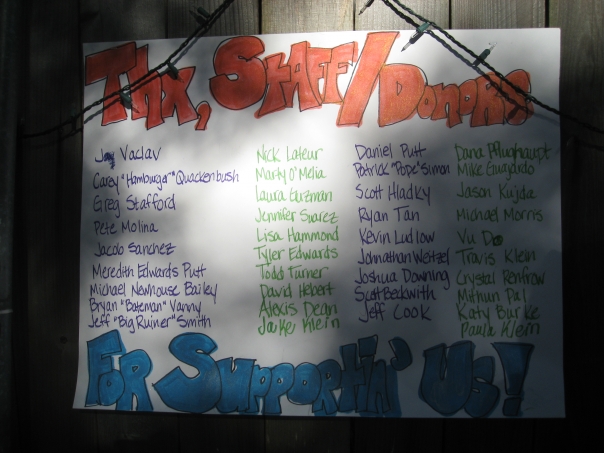 Thx, Staff/Donors
Jay Vaclav
Carey "Hamburger" Quackenbush
Greg Stafford
Pete Molina
Jacob Sanchez
Meredith Edwards Putt
Michael Newhouse Bailey
Bryan "Bateman" Vanny
Jeff "Big Ruiner" Smith
Nick Lateur
Marty O'Melia
Laura Guzman
Jennifer Suarez
Lisa Hammond
Tyler Edwards
Todd Turner
David Hebert
Alexis Dean
Jake Klein
Daniel Putt
Patrick "Pope" Simon
Scott Hladky
Ryan Tan
Kevin Ludlow
Johnathan Weitzel
Joshua Downing
Scott Beckwith
Jeff Cook
Dana Pflughaupt
Mike Guajardo
Jason Kujda
Michael Morris
Vu Do
Travis Klein
Crystal Renfrow
Mithun Pal
Katy Burke
Paula Klein
For Supportin' Us!